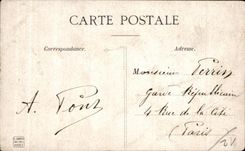 CARTE POSTALE
Correspondance. Adresse.
Monsieur Perrin
Garde Républicain
A. Pont
4 Rue de la Cité
Paris